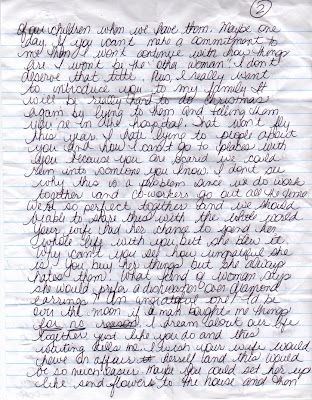 2
of our children when we have them. Maybe one
day. If you can't make a commitment to
me then I won't continue with how things
are. I won't be the "other woman". I don't
deserve that title. Plus, I really want
to introduce you to my family. It
will be really hard to do Christmas
again by lying to them and telling them
you're in the hospital. That won't fly
this year. I hate lying to people about
you and how I can't go to places with
you because you are scared we could
run into someone you know. I don't see
why this is a problem since we do work
together and co workers go out all the time.
We're so perfect together and we should
be able to share this with the whole world.
Your wife had her chance to spend her
whole life with you but she blew it.
Why can't you see how ungrateful she
is? You buy her things but she always
hates them. What kind of woman says
she would prefer a dishwasher over diamond
earrings? An ungrateful one! I'd be
over the moon if a man bought me things
for no reason. I dream about our life
together just like you do and this
waiting kills me. I wish your wife would
have an affair herself and this would
be so much easier. Maybe you could set her up
like send flowers to the house and then